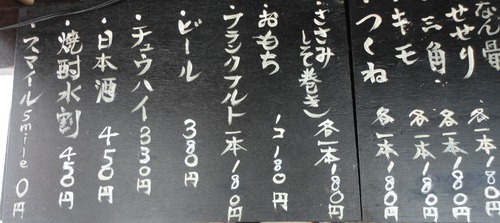 なん
せせり 各一本180円
三角 各一本180円
・キモ 各一本180円
・つくね 各一本180円
・ささみしそ巻き 各一本180円
・おもち 一コ180円
・フランクフルト 一本180円
・ビール 380円
・チュウハイ 330円
・日本酒 450円
・焼酎水割 450円
・スマイル smile 0円